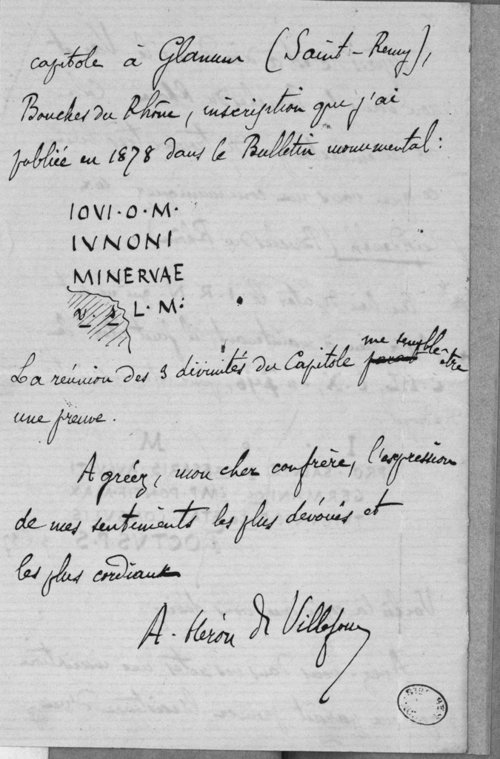 capitole à Glanum (Saint-Remy),
Bouches du Rhône, inscription que j'ai
publiée en 1878 dans le Bulletin monumental:
IOVI·O·M·
IVNONI
MINERVAE
V·S·L·M·
La réunion des 3 divinités du Capitole me semble être
une preuve.
Agréez, mon cher confrère, l'expression
de mes sentiments les plus dévoués et
les plus cordiaux
A. Héron de Villefosse